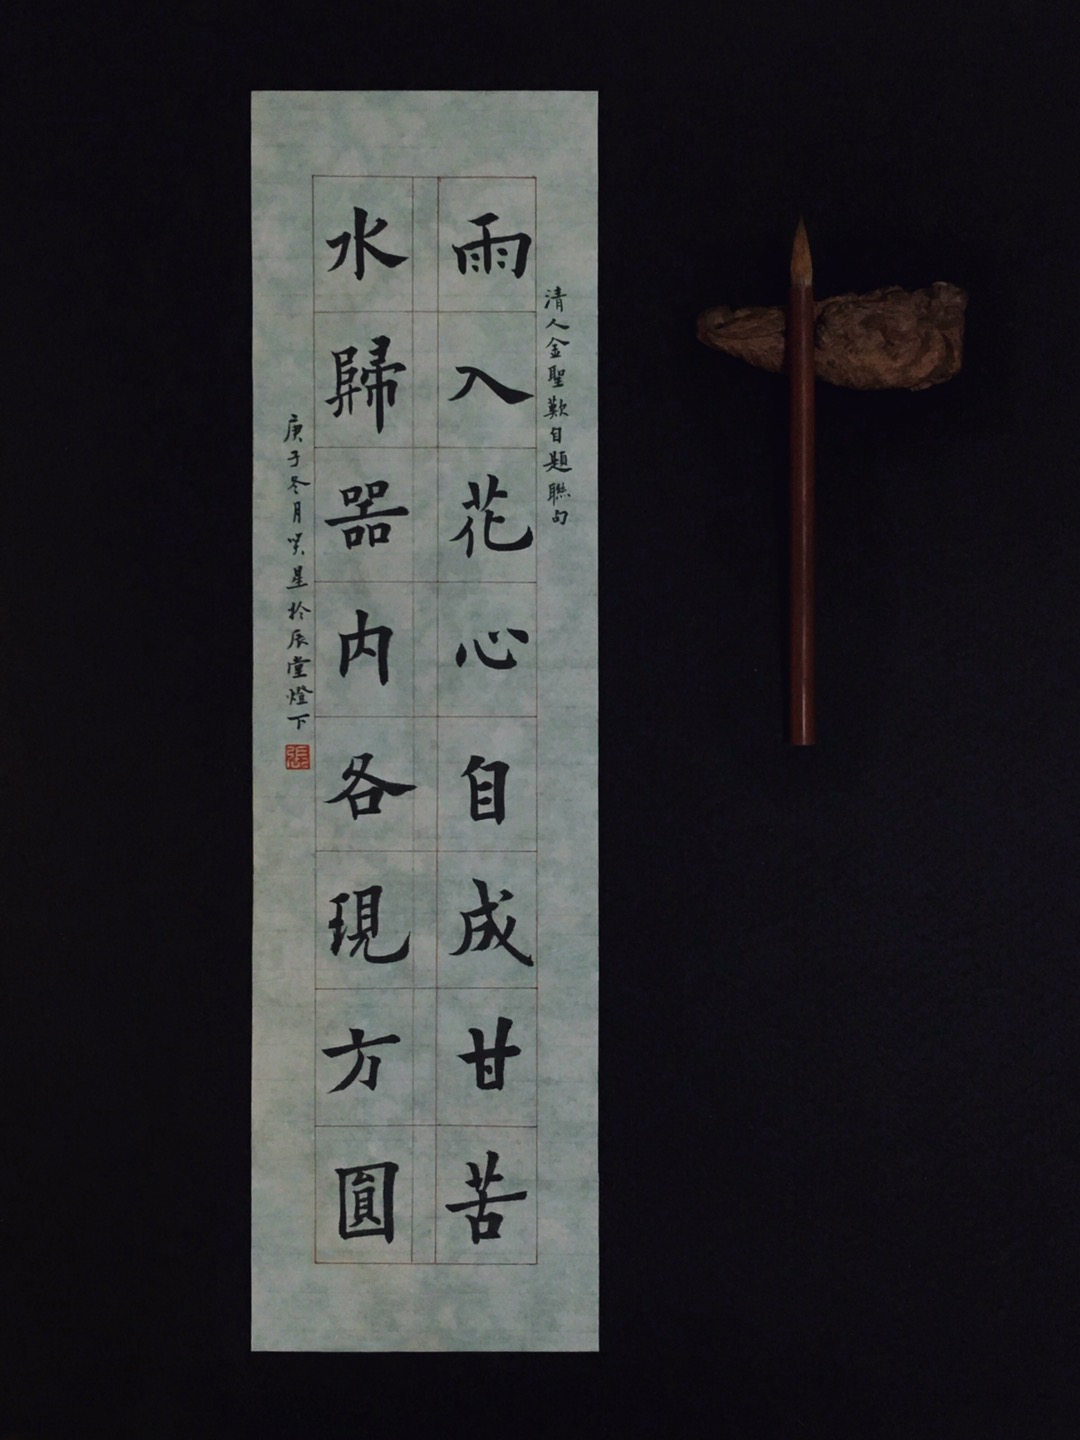 清人金聖歎自題聯句
雨入花心自成甘苦
水歸器内各現方圓
庚子冬月昊星於辰堂燈下